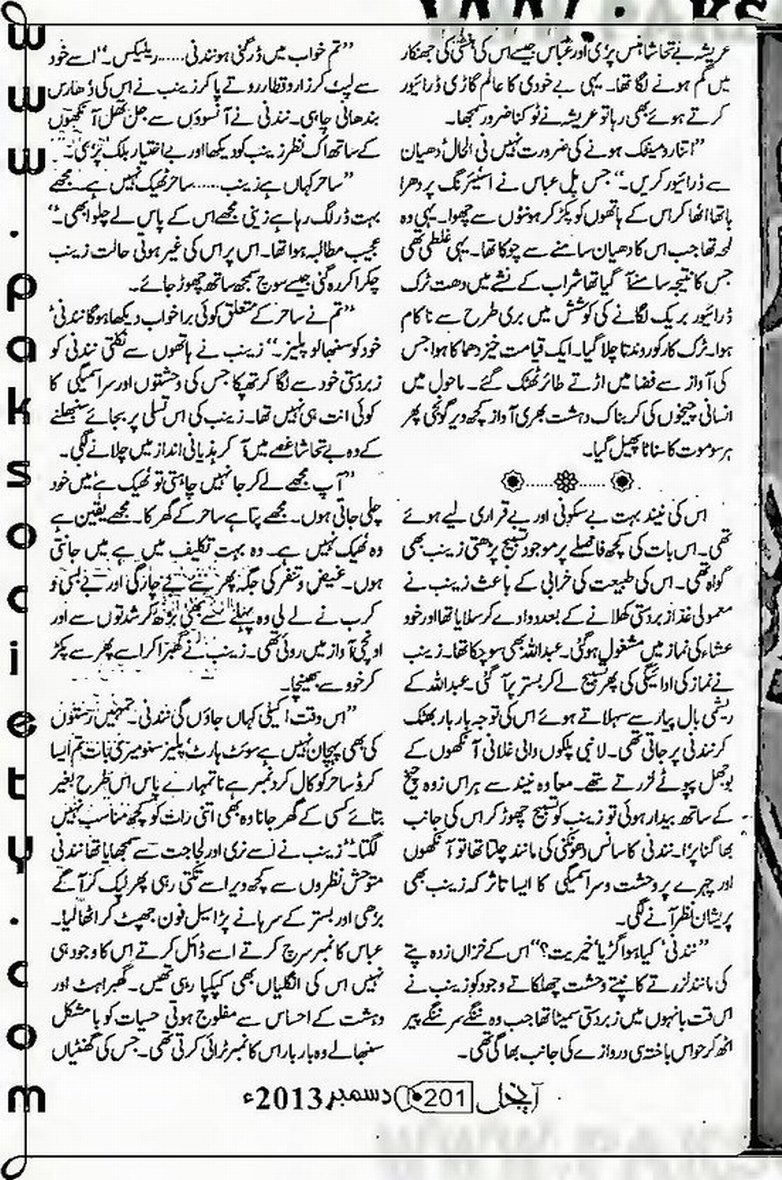 عریشہ بے تحاشا ہنس پڑی اور عباس جیسے اس کی ہنسی کی جھنکار
میں گم ہونے لگا تھا۔ یہی بے خودی کا عالم گاڑی ڈرائیور
کرتے ہوئے بھی رہا تو عریشہ نے ٹوکنا ضرور سمجھا۔
”اتنا رومینٹک ہونے کی ضرورت نہیں فی الحال دھیان
سے ڈرائیور کریں۔“ جس پل عباس نے اسٹیئرنگ پر دھرا
ہاتھ اٹھا کر اس کے ہاتھوں کو پکڑ کر ہونٹوں سے چھوا۔ یہی وہ
لمحہ تھا جب اس کا دھیان سامنے سے چوکا تھا۔ یہی غلطی تھی
جس کا نتیجہ سامنے آ گیا تھا شراب کے نشے میں دھت ٹرک
ڈرائیور بریک لگانے کی کوشش میں بری طرح سے ناکام
ہوا۔ ٹرک کار کو روندتا چلا گیا۔ ایک قیامت خیز دھماکا ہوا جس
کی آواز سے فضا میں اڑتے طائر ٹھٹک گئے۔ ماحول میں
انسانی چیخوں کی کربناک دہشت بھری آواز کچھ دیر گونجی پھر
ہر سو موت کا سناٹا پھیل گیا۔
اس کی نیند بہت بے سکونی اور بے قراری لیے ہوئے
تھی۔ اس بات کی کچھ فاصلے پر موجود تسبیح پڑھتی زینب بھی
گواہ تھی۔ اس کی طبیعت کی خرابی کے باعث زینب نے
معمولی غذا زبردستی کھلانے کے بعد دوا دے کر سلایا تھا اور خود
عشاء کی نماز میں مشغول ہو گئی۔ عبداللہ بھی سو چکا تھا۔ زینب
نے نماز کی ادائیگی کی پھر تسبیح لے کر بستر پر آ گئی۔ عبداللہ کے
ریشمی بال پیار سے سہلاتے ہوئے اس کی توجہ بار بار بھٹک
کر نندنی پر جاتی تھی۔ لانبی پلکوں والی غلافی آنکھوں کے
بوجھل پپوٹے لرزتے تھے۔ معاً وہ نیند سے ہراس زدہ چیخ
کے ساتھ بیدار ہوئی تو زینب کو تسبیح چھوڑ کر اس کی جانب
بھاگنا پڑا۔ نندنی کا سانس دھونکنی کی مانند چلتا تھا تو آنکھوں
اور چہرے پر وحشت و سراسیمگی کا ایسا تاثر کہ زینب بھی
پریشان نظر آنے لگی۔
”نندنی‘ کیا ہوا گڑیا‘ خیریت؟“ اس کے خزاں زدہ پتے
کی مانند لرزتے کانپتے وحشت چھلکاتے وجود کو زینب نے
اس وقت بانہوں میں زبردستی سمیٹا تھا جب وہ ننگے سر ننگے پیر
اٹھ کر حواس باختہ سی دروازے کی جانب بھاگی تھی۔
”تم خواب میں ڈر گئی ہو نندنی...... ریلیکس۔“ اسے خود
سے لپٹ کر زار و قطار روتے پا کر زینب نے اس کی ڈھارس
بندھانی چاہی۔ نندنی نے آنسوؤں سے جل تھل آنکھوں
کے ساتھ اک نظر زینب کو دیکھا اور بے اختیار بلک پڑی۔
”ساحر کہاں ہے زینب...... ساحر ٹھیک نہیں ہے۔ مجھے
بہت ڈر لگ رہا ہے زینی مجھے اس کے پاس لے چلو ابھی۔“
عجیب مطالبہ ہوا تھا۔ اس پر اس کی غیر ہوتی حالت زینب
چکرا کر رہ گئی جیسے سوچ سمجھ ساتھ چھوڑ جائے۔
”تم نے ساحر کے متعلق کوئی برا خواب دیکھا ہو گا نندنی‘
خود کو سنبھالو پلیز۔“ زینب نے ہاتھوں سے نکلتی نندنی کو
زبردستی خود سے لگا کر تھپکا جس کی وحشتوں اور سراسیمگی کا
کوئی انت ہی نہیں تھا۔ زینب کی اس تسلی پر بجائے سنبھلنے
کے وہ بے تحاشا غصے میں آ کر ہذیانی انداز میں چلانے لگی۔
”آپ مجھے لے کر جانا نہیں چاہتی تو ٹھیک ہے میں خود
چلی جاتی ہوں۔ مجھے پتا ہے ساحر کے گھر کا۔ مجھے یقین ہے
وہ ٹھیک نہیں ہے۔ وہ بہت تکلیف میں ہے میں جانتی
ہوں۔ غیض و تنفر کی جگہ پھر سے بے چارگی اور بے بسی و
کرب نے لے لی وہ پہلے سے بھی بڑھ کر شدتوں سے اور
اونچی آواز میں روئی تھی۔ زینب نے گھبرا کر اسے پھر سے پکڑ
کر خود سے بھینچا۔
”اس وقت! اکیلی کہاں جاؤں گی نندنی۔ تمہیں رستوں
کی بھی پہچان نہیں ہے سوئٹ ہارٹ‘ پلیز سنو میری بات تم ایسا
کرو ساحر کو کال کرو نمبر ہے نا تمہارے پاس اس طرح بغیر
بتائے کسی کے گھر جانا وہ بھی اتنی رات کو کچھ مناسب نہیں
لگتا۔“ زینب نے اسے نرمی اور لجاجت سے سمجھایا تھا نندنی
متوحش نظروں سے کچھ دیر اسے تکتی رہی پھر لپک کر آگے
بڑھی اور بستر کے سرہانے پڑا سیل فون جھپٹ کر اٹھا لیا۔
عباس کا نمبر سرچ کرتے اسے ڈائل کرتے اس کا وجود ہی
نہیں اس کی انگلیاں بھی کپکپا رہی تھیں۔ گھبراہٹ اور
دہشت کے احساس سے مفلوج ہوتی حسیات کو بامشکل
سنبھالے وہ بار بار اس کا نمبر ٹرائی کرتی تھی۔ جس کی گھنٹیاں
آنچل 201 دسمبر 2013ء
www.paksociety.com